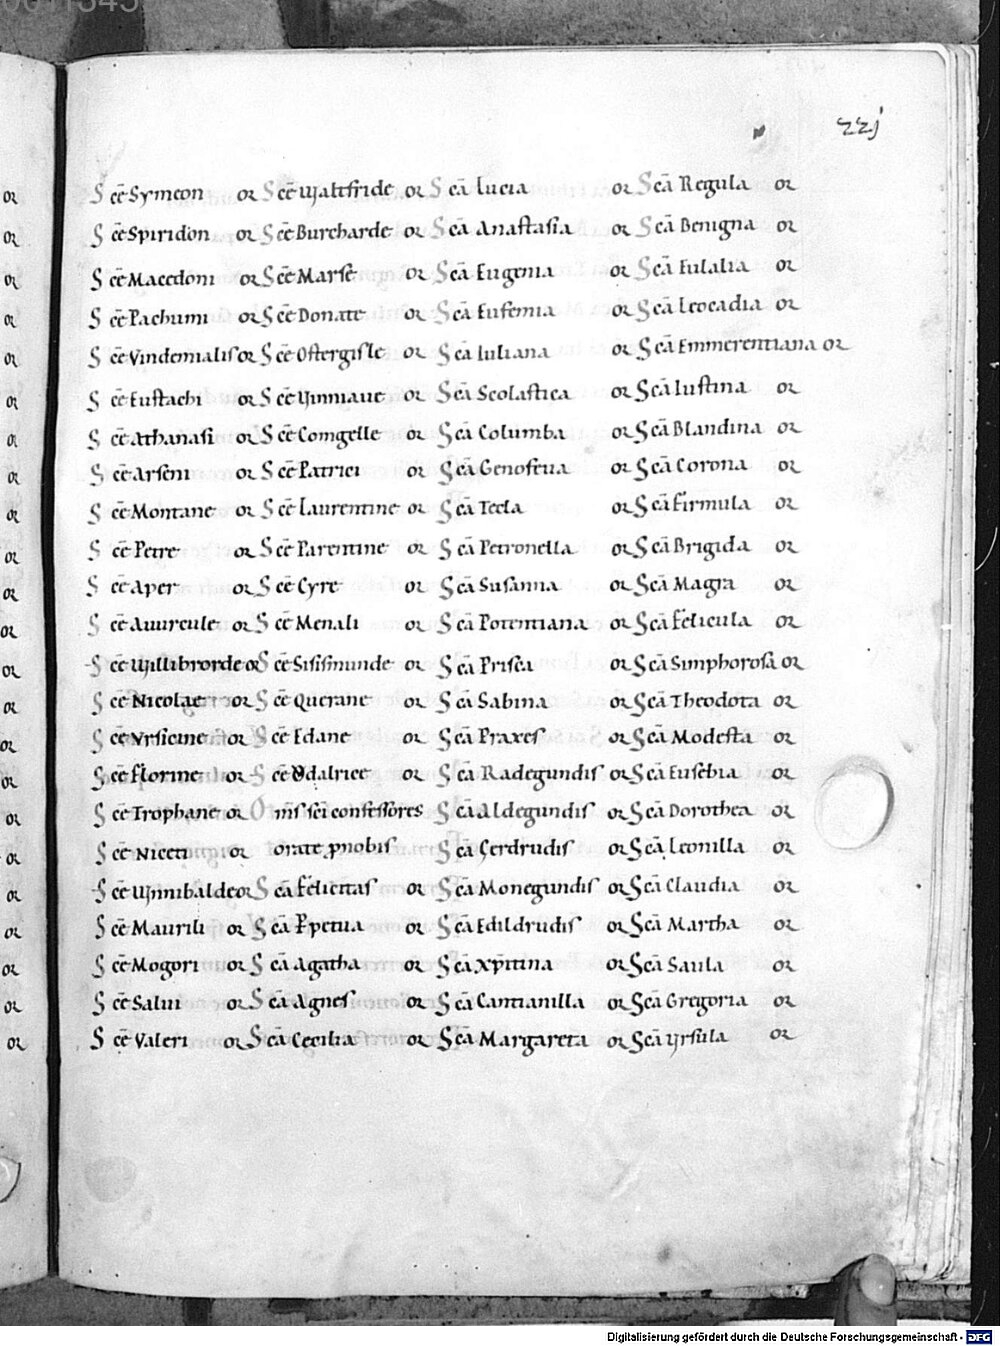 zzj
Scē Symeon or Scē Waltfride or Scā Lucia or Scā Regula or
Scē Spiridon or Scē Burcharde or Scā Anastasia or Scā Benigna or
Scē Macedoni or Scē Marsē or Scā Eugenia or Scā Eulalia or
Scē Pachumi or Scē Donate or Scā Eufemia or Scā Leocadia or
Scē Vindemialis or Scē Ostergisle or Scā Iuliana or Scā Emmerentiana or
Scē Eustachi or Scē Winniaue or Scā Scolastica or Scā Iustina or
Scē Athanasi or Scē Comgelle or Scā Columba or Scā Blandina or
Scē Arseni or Scē Patrici or Scā Genofeua or Scā Corona or
Scē Montane or Scē Laurentine or Scā Tecla or Scā Firmula or
Scē Petre or Scē Parentine or Scā Petronella or Scā Brigida or
Scē Aper or Scē Cyre or Scā Susanna or Scā Magra or
Scē Auurcule or Scē Menali or Scā Potentiana or Scā Felicula or
Scē Willibrorde or Scē Sisismunde or Scā Prisca or Scā Simphorosa or
Scē Nicolae or Scē Querane or Scā Sabina or Scā Theodota or
Scē Vrsicine or Scē Edane or Scā Praxes or Scā Modesta or
Scē Florine or Scē Odalrice or Scā Radegundis or Scā Eusebia or
Scē Trophane or Omīs sci confessores Scā Aldegundis or Scā Dorothea or
Scē Niceti or orate pnobis Scā Gerdrudis or Scā Leonilla or
Scē Winnibalde or Scā Felicitas or Scā Monegundis or Scā Claudia or
Scē Maurili or Scā Ppetua or Scā Edildrudis or Scā Martha or
Scē Mogori or Scā Agatha or Scā Xp̄itina or Scā Saula or
Scē Salui or Scā Agnes or Scā Cantianilla or Scā Gregoria or
Scē Valeri or Scā Cecilia or Scā Margareta or Scā Vrsula or
Digitalisierung gefördert durch die Deutsche Forschungsgemeinschaft - DFG